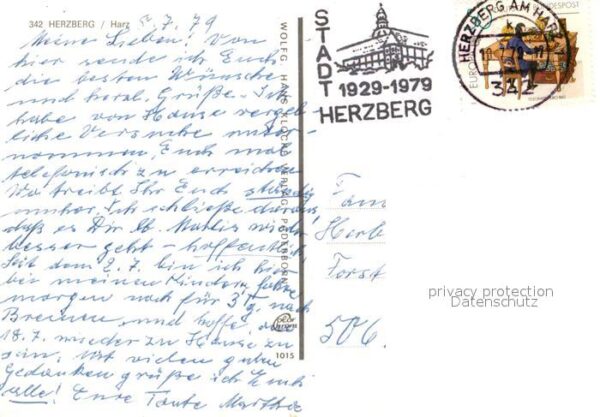 342 HERZBERG / Harz 5.7.79
Meine Lieben! Von
hier sende ich Euch
die besten Wünsche
und herzl. Grüße. Ich
habe von Hause vergeb-
liche Versuche unter-
nommen, Euch mal
telefonisch zu erreichen
Wo treibt Ihr Euch ständig
umher. Ich schließe daraus,
daß es Dir lb. Marlis wieder
besser geht - hoffentlich!
Seit dem 2.7. bin ich hier
bei meinen Kindern, fahre
morgen noch für 3 Tg. nach
Bremen und hoffe, am
18.7. wieder zu Hause zu
sein. Mit vielen guten
Gedanken grüße ich Euch
alle! Eure Tante Martha
WOLFG. HANS KLOCKE VERLAG, PADERBORN
1015
STADT
1929-1979
HERZBERG
HERZBERG AM HARZ
342
EUROPA
BUNDESPOST
Fam
Herb
Forst
506
privacy protection
Datenschutz